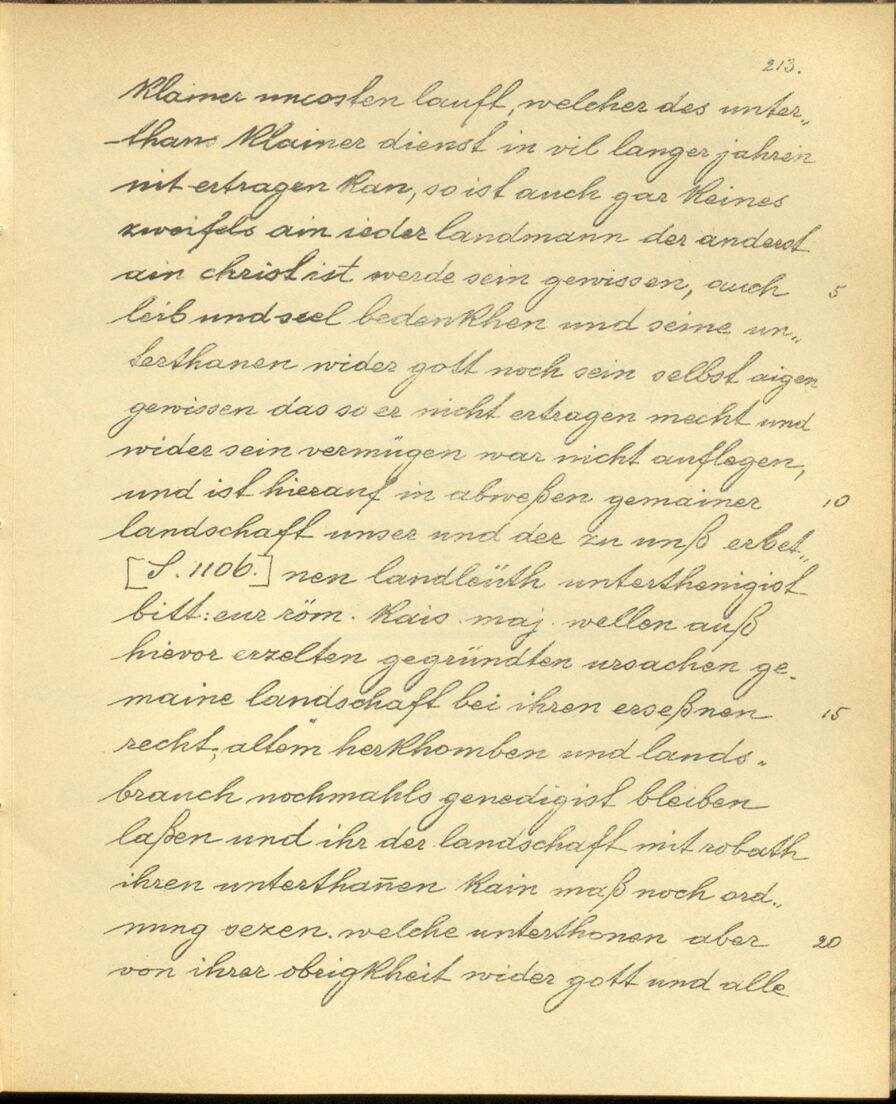 213.
klainer uncosten lauft, welcher des unter„
-thans klainer dienst in vil langer jahren
nit ertragen kan, so ist auch gar keines
zweifels ain ieder landmann der anderst
ain christ ist werde sein gewissen, auch 5
leib und seel bedenkhen und seine un„
terthanen wider gott noch sein selbst aigen
gewissen das so er nicht ertragen mecht und
wider sein vermügen war nicht auflegen,
und ist hierauf in abweßen gemainer 10
landschaft unser und der zu unß erbet„
[S. 1106.] nen landleüth unterthenigist
bitt: eur röm. kais. maj. wellen auß
hievor erzelten gegründten ursachen ge-
maine landschaft bei ihren erseßnen 15
recht, altem herkhomben und lands-
brauch nochmahls genedigist bleiben
laßen und ihr der landschaft mit robath
ihren unterthan̄en kain maß noch ord„
nung sezen. welche unterthonen aber 20
von ihrer obrigkheit wider gott und alle